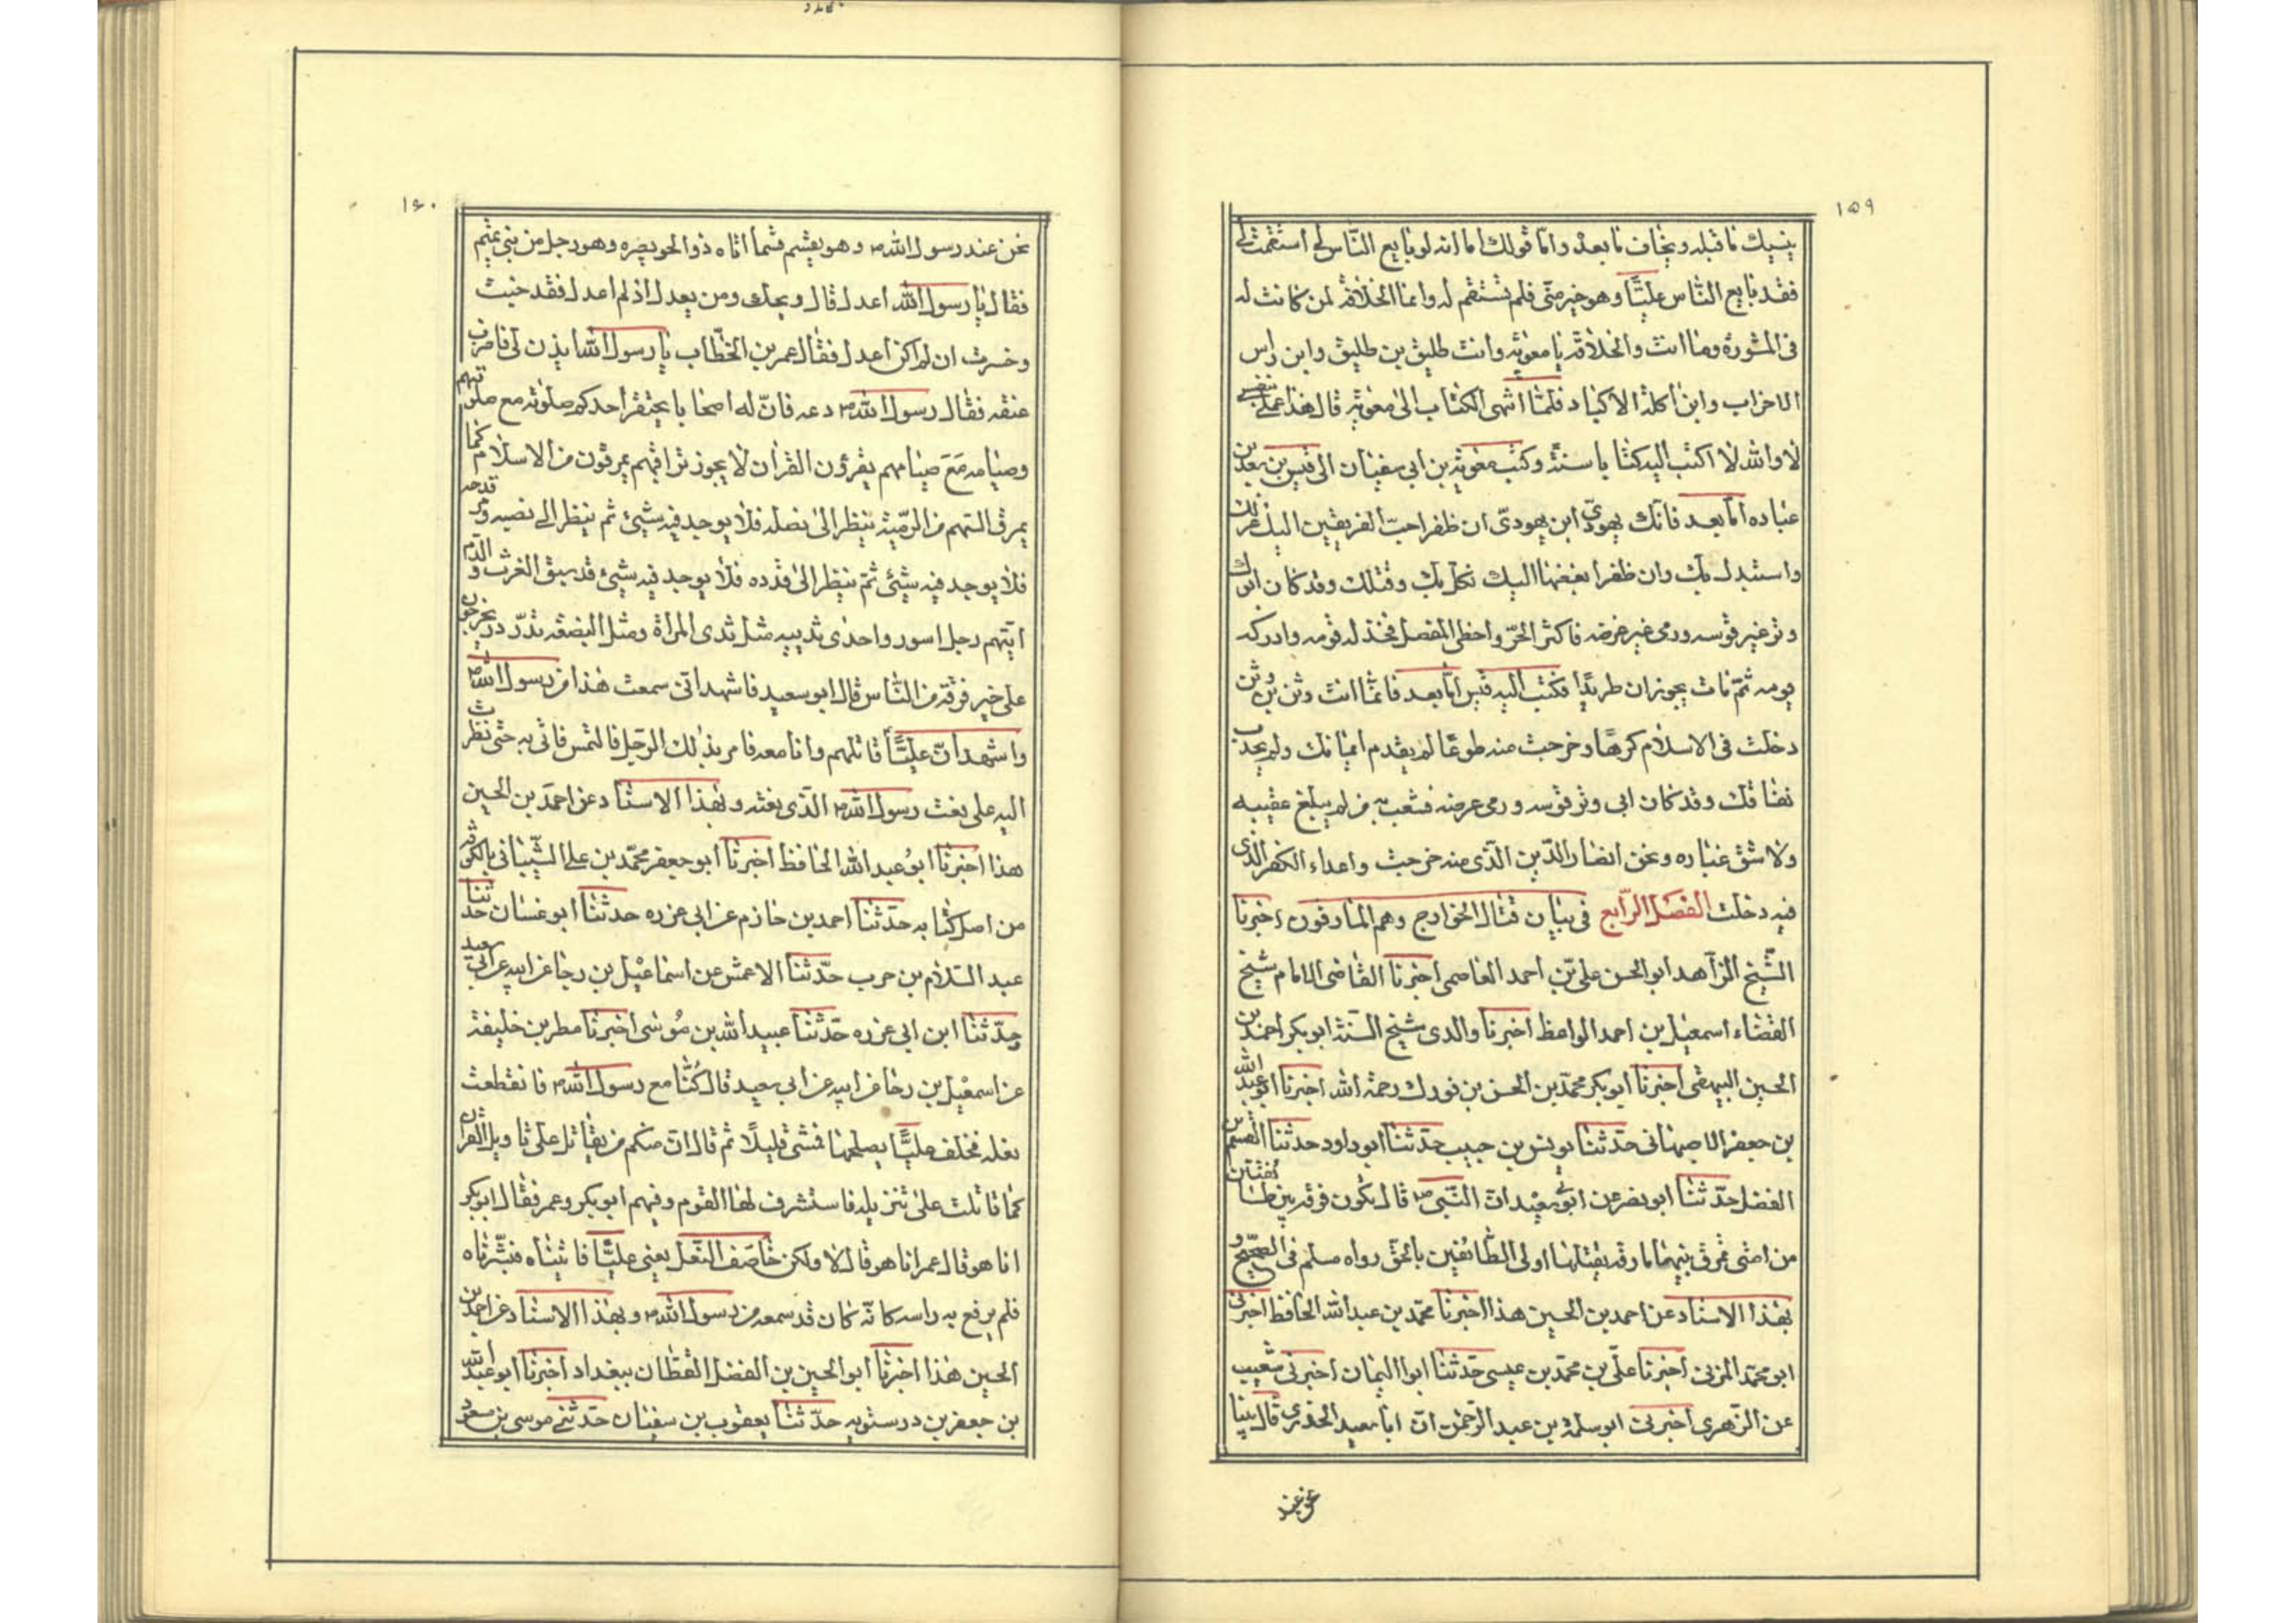 ١٥٩
ينسيك ما قبله ويخاف ما بعده واما قولك اما انه لو بايع الناس لى استقمت لى
فقد بايع الناس عليّا وهو خير منّى فلم تستقم له وانما الخلافة لمن كانت له
فى المشورة وما انت والخلافة يا معوية وانت طليق بن طليق وابن راس
الاحزاب وابن اكلة الاكباد فلمّا انتهى الكتاب الى معوية قال هذا عملى بنفسى
لا والله لا اكتب اليه كتابا سنة وكتب معوية بن ابى سفيان الى قيس بن سعد بن
عباده امّا بعد فانك يهودىّ ابن يهودىّ ان ظفر احبّ الفريقين اليك عزلك
واستبدل بك وان ظفر ابغضها اليك نكل بك وقتلك وقد كان ابوك
وتر غير قوسه ورمى غير غرضه فاكثر الحزّ واخطى المفصل فخذله قومه وادركه
يومه ثمّ مات بحوران طريدا فكتب اليه قيس امّا بعد فانّما انت وثن بن وثن
دخلت فى الاسلام كرهًا وخرجت منه طوعًا لم يقدم ايمانك ولم يحدث
نفاقك وقد كان ابى وتر قوسه ورمى غرضه فشعب به من لم يبلغ عقبيه
ولا شق غباره ونحن انصار الدّين الّذى منه خرجت واعداء الكفر الذى
فيه دخلت الفصل الرّابع فى بيان قتال الخوارج وهم المارقون اخبرنا
الشّيخ الزّاهد ابو الحسن علىّ بن احمد العاصمى اخبرنا القاضى الامام شيخ
القضاء اسمعيل بن احمد الواعظ اخبرنا والدى شيخ السّنة ابو بكر احمد بن
الحسين البيهقى اخبرنا ابو بكر محمّد بن الحسن بن فورك رحمة الله اخبرنا ابو عبد الله
بن جعفر الاصبهانى حدّثنا يونس بن حبيب حدّثنا ابو داود حدثنا القسم بن
الفضل حدّثنا ابو نضر عن ابى سعيد انّ النّبى ص قال يكون فرقة بين طائفتين
من امّتى تمرق بينهما مارقة يقتلها اولى الطّائفتين بالحق رواه مسلم فى الصّحيح و
بهذا الاسناد عن احمد بن الحسين هذا اخبرنا محمّد بن عبد الله الحافظ اخبرنى
ابو محمّد المزنى اخبرنا علىّ بن محمّد بن عيسى حدّثنا ابو اليمان اخبرنى شعيب
عن الزّهرى اخبرنى ابو سلمة بن عبد الرّحمن انّ ابا سعيد الخدرى قال بينا
نحن عند
١٦٠
نحن عند رسول الله ص وهو يقسم قسما اتاه ذو الخويصره وهو رجل من بنى تميم
فقال يا رسول الله اعدل قال ويحك ومن يعدل اذ لم اعدل فقد خبت
وخسرت ان لم اكن اعدل فقال عمر بن الخطّاب يا رسول الله ايذن لى فاضرب
عنقه فقال رسول الله ص دعه فانّ له اصحابا يحتقر احدكم صلوته مع صلوتهم
وصيامه مع صيامهم يقرؤن القران لا يجوز تراقيهم يمرقون من الاسلام كما
يمرق السّهم من الرّمية ينظر الى نصله فلا يوجد فيه شيئ ثم ينظر الى نضيه وقدحه
فلا يوجد فيه شيئ ثمّ ينظر الى قذده فلا يوجد فيه شيئ قد سبق الفرث والدّم
ايتهم رجل اسود واحدى ثدييه مثل ثدى المراة ومثل البضعة تدرّدر يخرجون
على خير فرقة من النّاس قال ابو سعيد فاشهد انّى سمعت هذا من رسول الله ص
واشهد انّ عليّا قاتلهم وانا معه فامر بذلك الرّجل فالتمس فاتى به حتى نظرت
اليه على نعت رسول الله ص الّذى نعته وبهذا الاسناد عن احمد بن الحسين
هذا اخبرنا ابو عبد الله الحافظ اخبرنا ابو جعفر محمّد بن على الشّيبانى بالكوفة
من اصل كتابه حدّثنا احمد بن خازم عن ابى عزره حدّثنا ابو غسان حدّثنا
عبد السّلام بن حرب حدّثنا الاعمش عن اسماعيل بن رجا عن ابيه عن ابى سعيد
حدّثنا ابن ابى عزره حدّثنا عبيد الله بن موسى اخبرنا مطر بن خليفة
عن اسمعيل بن رجا عن ابيه عن ابى سعيد قال كنّا مع رسول الله ص فانقطعت
نعله فخلف عليّا يصلحها فمشى قليلًا ثم قال انّ منكم من يقاتل على تاويل القران
كما قاتلت على تنزيله فاستشرف لها القوم وفيهم ابو بكر وعمر فقال ابو بكر
انا هو قال عمر انا هو قال لا ولكن خاصف النّعل يعنى عليّا فاتيناه فبشّرناه
فلم يرفع به راسه كانّه كان قد سمعه من رسول الله ص وبهذا الاسناد عن احمد بن
الحسين هذا اخبرنا ابو الحسين بن الفضل القطّان ببغداد اخبرنا ابو عبد الله
بن جعفر بن درستويه حدّثنا يعقوب بن سفيان حدّثنى موسى بن مسعود